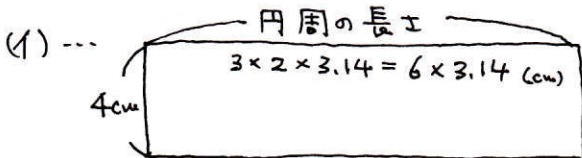 円周の長さ
(イ)…
3×2×3.14=6×3.14 (cm)
4cm